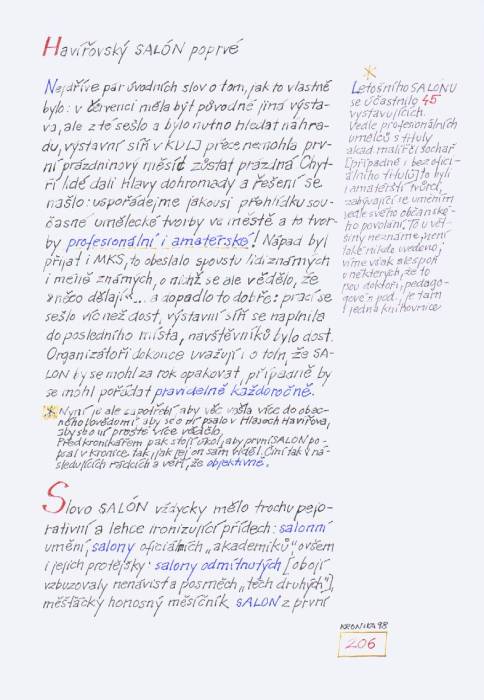 Havířovský SALÓN poprvé
Nejdříve pár úvodních slov o tom, jak to vlastně
bylo: v červenci měla být původně jiná výsta-
va, ale z té sešlo a bylo nutno hledat náhra-
du, výstavní síň v KULJ přece nemohla prv-
ní prázdninový měsíc zůstat prázdná. Chyt-
ří lidé dali hlavy dohromady a řešení se
našlo: uspořádejme jakousi přehlídku sou-
časné umělecké tvorby ve městě a to tvor-
by profesionální i amatérské! Nápad byl
přijat i MKS, to obeslalo spoustu lidí známých
i méně známých, o nichž se ale vědělo, že
"něco dělají"... a dopadlo to dobře: prací se
sešlo víc než dost, výstavní síň se naplnila
do posledního místa, návštěvníků bylo dost.
Organizátoři dokonce uvažují i o tom, že SA-
LON by se mohl za rok opakovat, případně by
se mohl pořádat pravidelně každoročně.
Nyní je ale zapotřebí aby věc vešla více do obec-
ného povědomí, aby se o ní psalo v Hlasech Havířova,
aby se o ní prostě více vědělo.
Před kronikářem pak stojí úkol, aby první SALON po-
psal v kronice tak, jak jej on sám viděl. Činí tak v ná-
sledujících řádcích a věří, že objektivně.
Slovo SALÓN vždycky mělo trochu pejo-
rativní a lehce ironizující přídech: salonní
umění, salony oficiálních "akademiků" ovšem
i jejich protějšky: salony odmítnutých [obojí
vzbuzovaly nenávist a posměch "těch druhých"],
měšťácký honosný měsíčník SALON z první
Letošního SALÓNU
se účastnilo 45
vystavujících.
Vedle profesionálních
umělců s tituly
akad. malíř, sochař
[případně i bez ofici-
álního titulu] to byli
i amatérští tvůrci,
zabývající se uměním
vedle svého občanské-
ho povolání. To u vět-
šiny neznáme, není
také nikde uvedeno,
víme však alespoň
u některých, že to
jsou doktoři, pedago-
gové a pod. je tam
i jedna knihovnice
KRONIKA 98
206